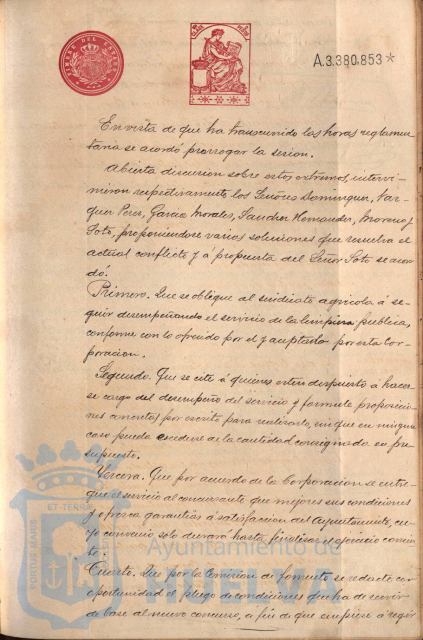 TIMBRE DEL ESTADO
A.3.380.853*
En vista de que ha transcurrido las horas reglamen-
taria se acordó prorrogar la sesion.
Abierta discusion sobre estos extremos, intervi-
nieron respectivamente los Señores Dominguez, Vaz-
quez Perez, Garcia Morales, Sanchez Hernandez, Moreno y
Soto, proponiendose varias soluciones que resuelva el
actual conflicto y á propuesta del Señor Soto se acor-
dó.
Primero. Que se obligue al sindicato agricola á se-
guir desempeñando el servicio de la limpieza publica,
conforme con lo ofrecido por el y aceptado por esta Cor-
poracion.
Segundo. Que se cite á quienes esten dispuesto á hacer-
se cargo del desempeño del servicio y formule proposicio-
nes concretas por escrito para realizarlo, sin que en ningun
caso pueda excederse de la cantidad consignada en pre-
supuesto.
Tercera. Que por acuerdo de la Corporacion se entre-
gue el servicio al concursante que mejores sus condiciones
y ofrezca garantias á satisfaccion del Ayuntamiento, cu-
yo convenio solo durará hasta finalizar el ejercicio corrien-
te.
Cuarto. Que por la Comision de fomento se redacte con
oportunidad el pliego de condiciones que ha de servir
de base al nuevo concurso, á fin de que empiese á regir
PORTUS MARIS
ET TERRÆ
Ayuntamiento de
HUELVA